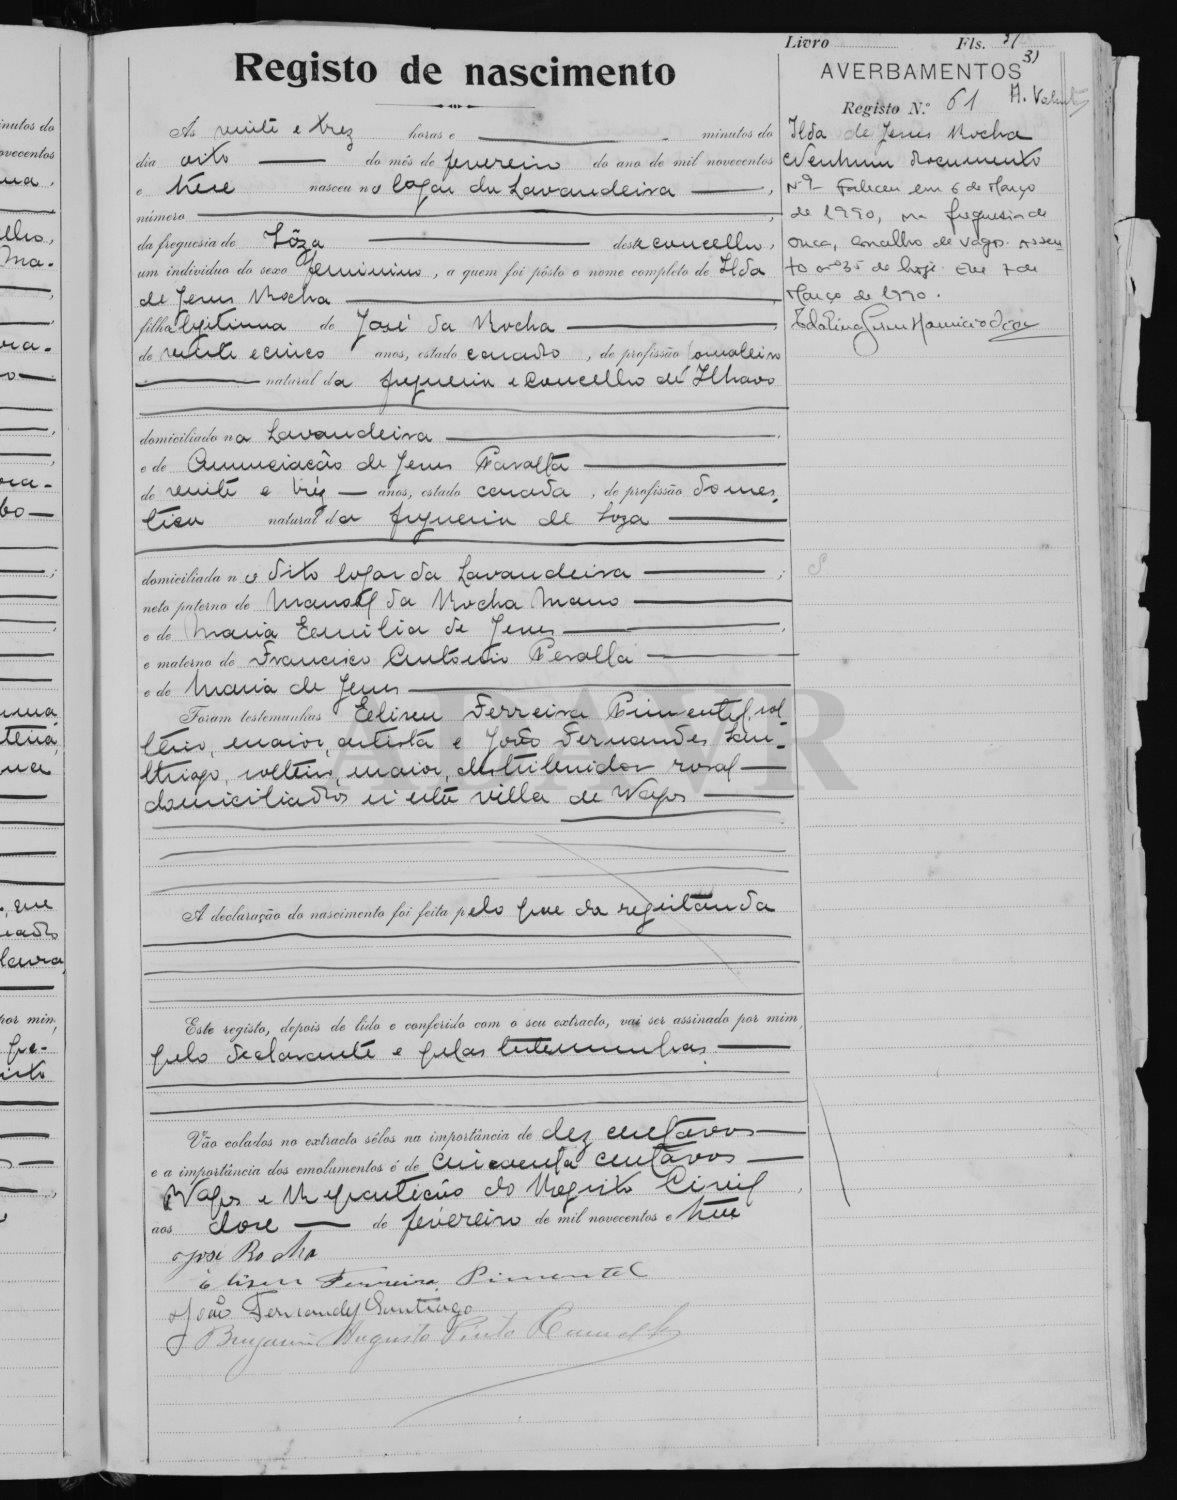 Livro Fls. 31
31
Registo de nascimento
AVERBAMENTOS
Registo N.º 61
Ás vinte e trez horas e minutos do
dia oito do mês de fevereiro do ano de mil novecentos
e treze nasceu no logar da Lavandeira,
número
da freguesia de Sôza deste concelho,
um indivíduo do sexo feminino, a quem foi pôsto o nome completo de Ilda
de Jesus Rocha
filha legitima de José da Rocha
de vinte e cinco anos, estado casado, de profissão jornaleiro
natural da freguesia e concelho de Ilhavo
domiciliado na Lavandeira
e de Anunciação de Jesus Paralta
de vinte e trêz anos, estado casada, de profissão domes-
tica natural da freguesia de Soza
domiciliada no dito logar da Lavandeira;
neto paterno de Manoel da Rocha Mano
e de Maria Emilia de Jesus
e materno de Francisco Antonio Peralta
e de Maria de Jesus
Foram testemunhas Eliseu Ferreira Pimentel, sol-
teiro, maior, artista e João Fernandes San-
thiago, solteiro, maior, distribuidor rural
domiciliados n'esta villa de Vagos
A declaração do nascimento foi feita pelo pae da registanda
Este registo, depois de lido e conferido com o seu extracto, vai ser assinado por mim,
pelo declarante e pelas testemunhas.
Vão colados no extracto sêlos na importância de dez centavos
e a importância dos emolumentos é de cincoenta centavos
Vagos e Repartição do Registo Civil,
aos doze de fevereiro de mil novecentos e treze
José Rocha
Elizeu Ferreira Pimentel
João Fernandes Santiago
Benjamin Augusto Pinto
Ilda de Jesus Rocha
Nenhum documento
Faleceu em 6 de Março
de 1990, na freguesia de
Ouca, concelho de Vagos. Assen-
to nº 35 de hoje. Em 7 de
Março de 1990.